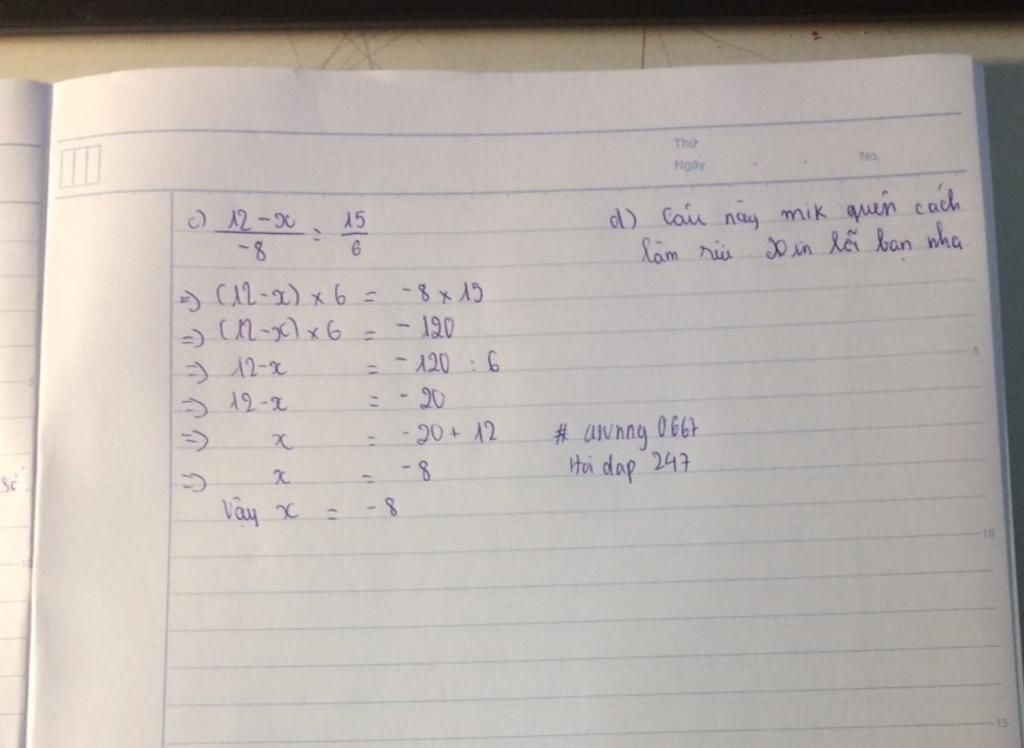 Thứ
Ngày
No.
c) \frac{12-x}{-8} = \frac{15}{6}
=> (12-x) × 6 = -8 × 15
=> (12-x) × 6 = - 120
=> 12-x = -120 : 6
=> 12-x = - 20
=> x = -20 + 12
=> x = -8
Vậy x = -8
d) Câu này mik quên cách
làm rùi Xin lỗi bạn nha
0667
Hỏi dap 247
5
10
15